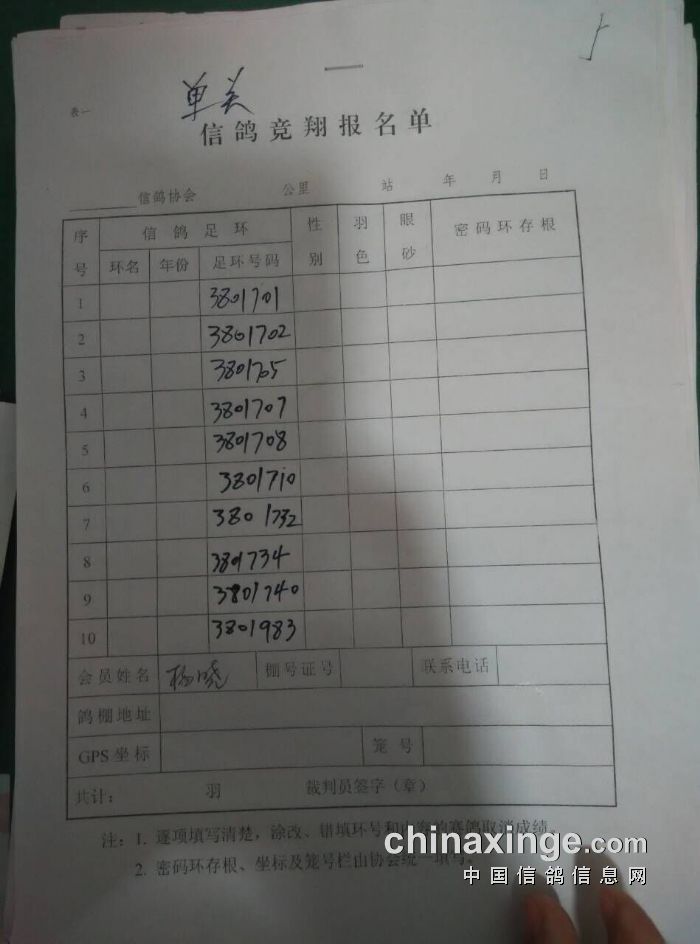 表一
单关
信鸽竞翔报名单
信鸽协会 公里 站 年 月 日
序号 信鸽足环 性别 羽色 眼砂 密码环存根
环名 年份 足环号码
1 3801701
2 3801702
3 3801705
4 3801707
5 3801708
6 3801710
7 3801732
8 3801734
9 3801740
10 3801983
会员姓名 杨晓 棚号证号 联系电话
鸽棚地址
GPS坐标 笼号
共计: 羽 裁判员签字(章)
注: 1. 逐项填写清楚，涂改、错填环号和 赛鸽取消成绩。
2. 密码环存根、坐标及笼号栏由协会统一填写。
chinaxinge.com
中国信鸽信息网